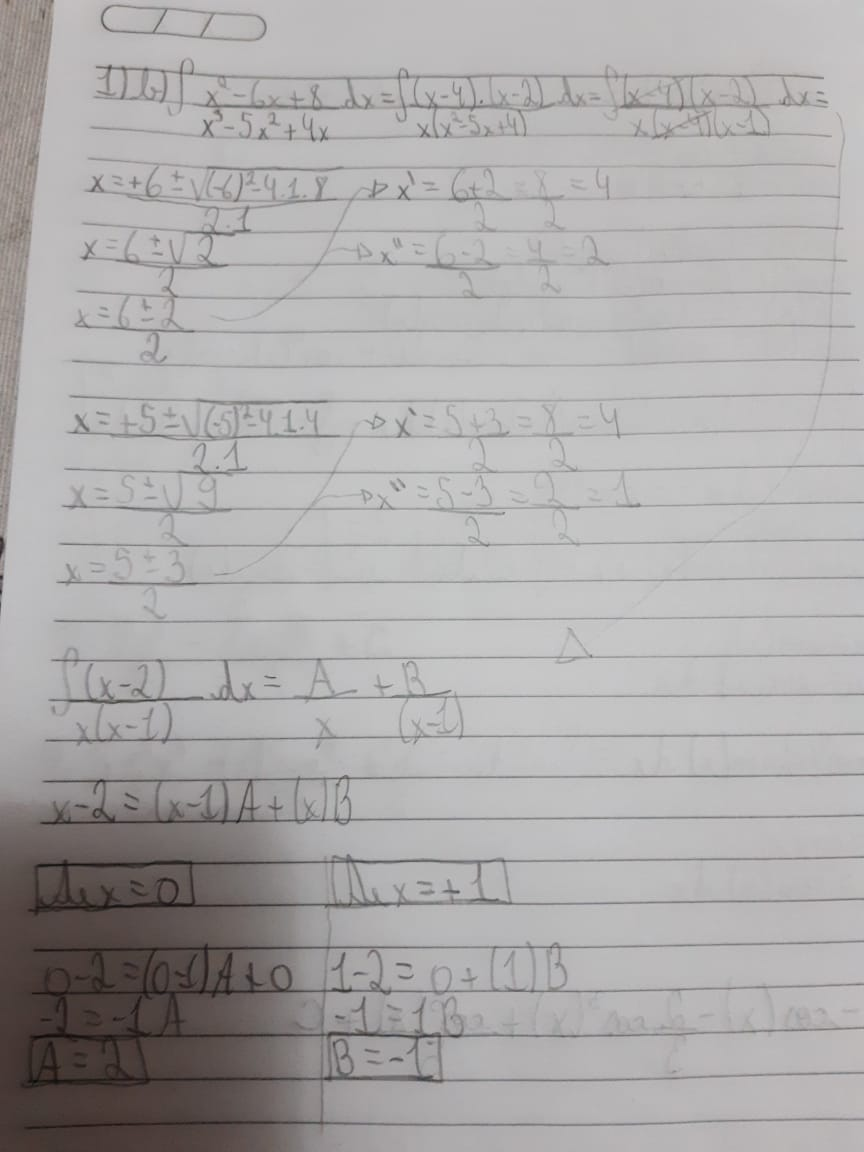 1) b) ∫ x²-6x+8 / x³-5x²+4x dx = ∫ (x-4).(x-2) / x(x²-5x+4) dx = ∫ (x-4)(x-2) / x(x-4)(x-1) dx =
x = +6 ± √(-6)²-4.1.8 / 2.1 → x' = 6+2 / 2 = 8 / 2 = 4
x = 6 ± √2 / 2 → x" = 6-2 / 2 = 4 / 2 = 2
x = 6 ± 2 / 2
x = +5 ± √(-5)²-4.1.4 / 2.1 → x' = 5+3 / 2 = 8 / 2 = 4
x = 5 ± √9 / 2 → x" = 5-3 / 2 = 2 / 2 = 1
x = 5 ± 3 / 2
∫ (x-2) / x(x-1) dx = A / x + B / (x-1)
x-2 = (x-1)A + (x)B
Se x = 0 Se x = +1
0-2 = (0-1)A + 0 1-2 = 0 + (1)B
-2 = -1A -1 = 1B
A = 2 B = -1